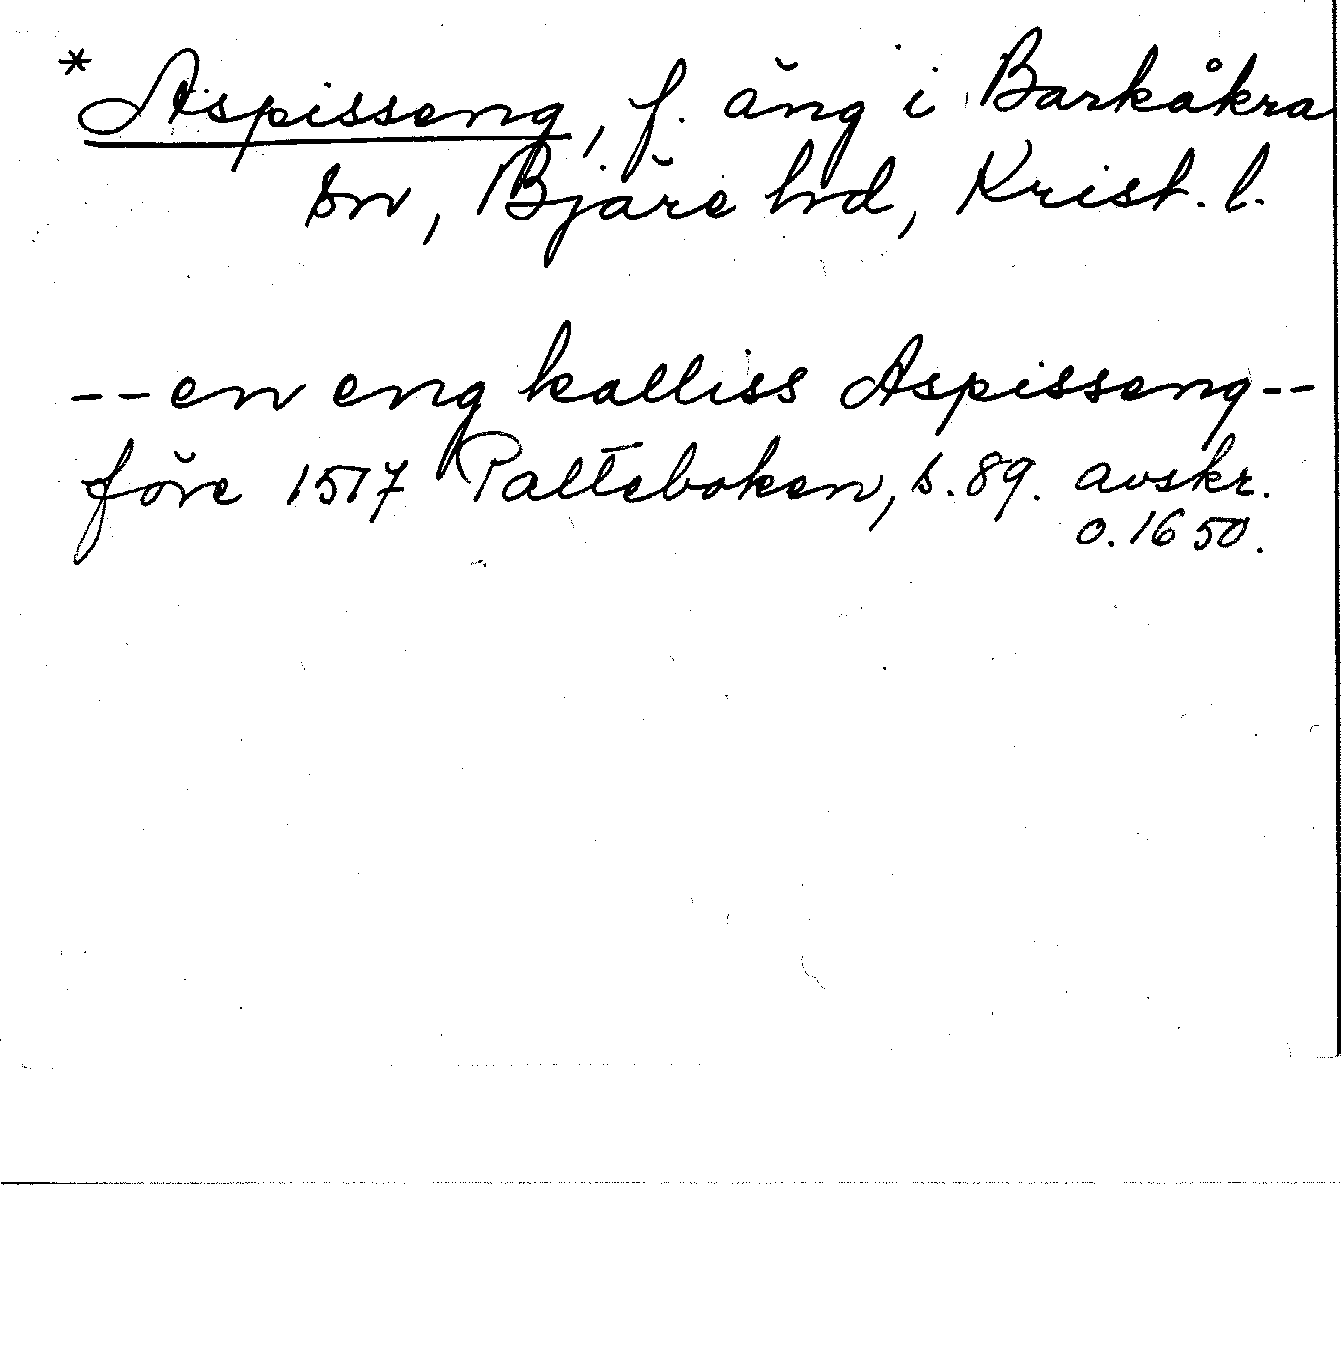 * Aspisseng, f. äng i Barkåkra
sn, Bjäre hd, Krist. l.
-- en eng kalliss Aspisseng --
före 1517 Palteboken, s. 89. avskr.
o. 1650.